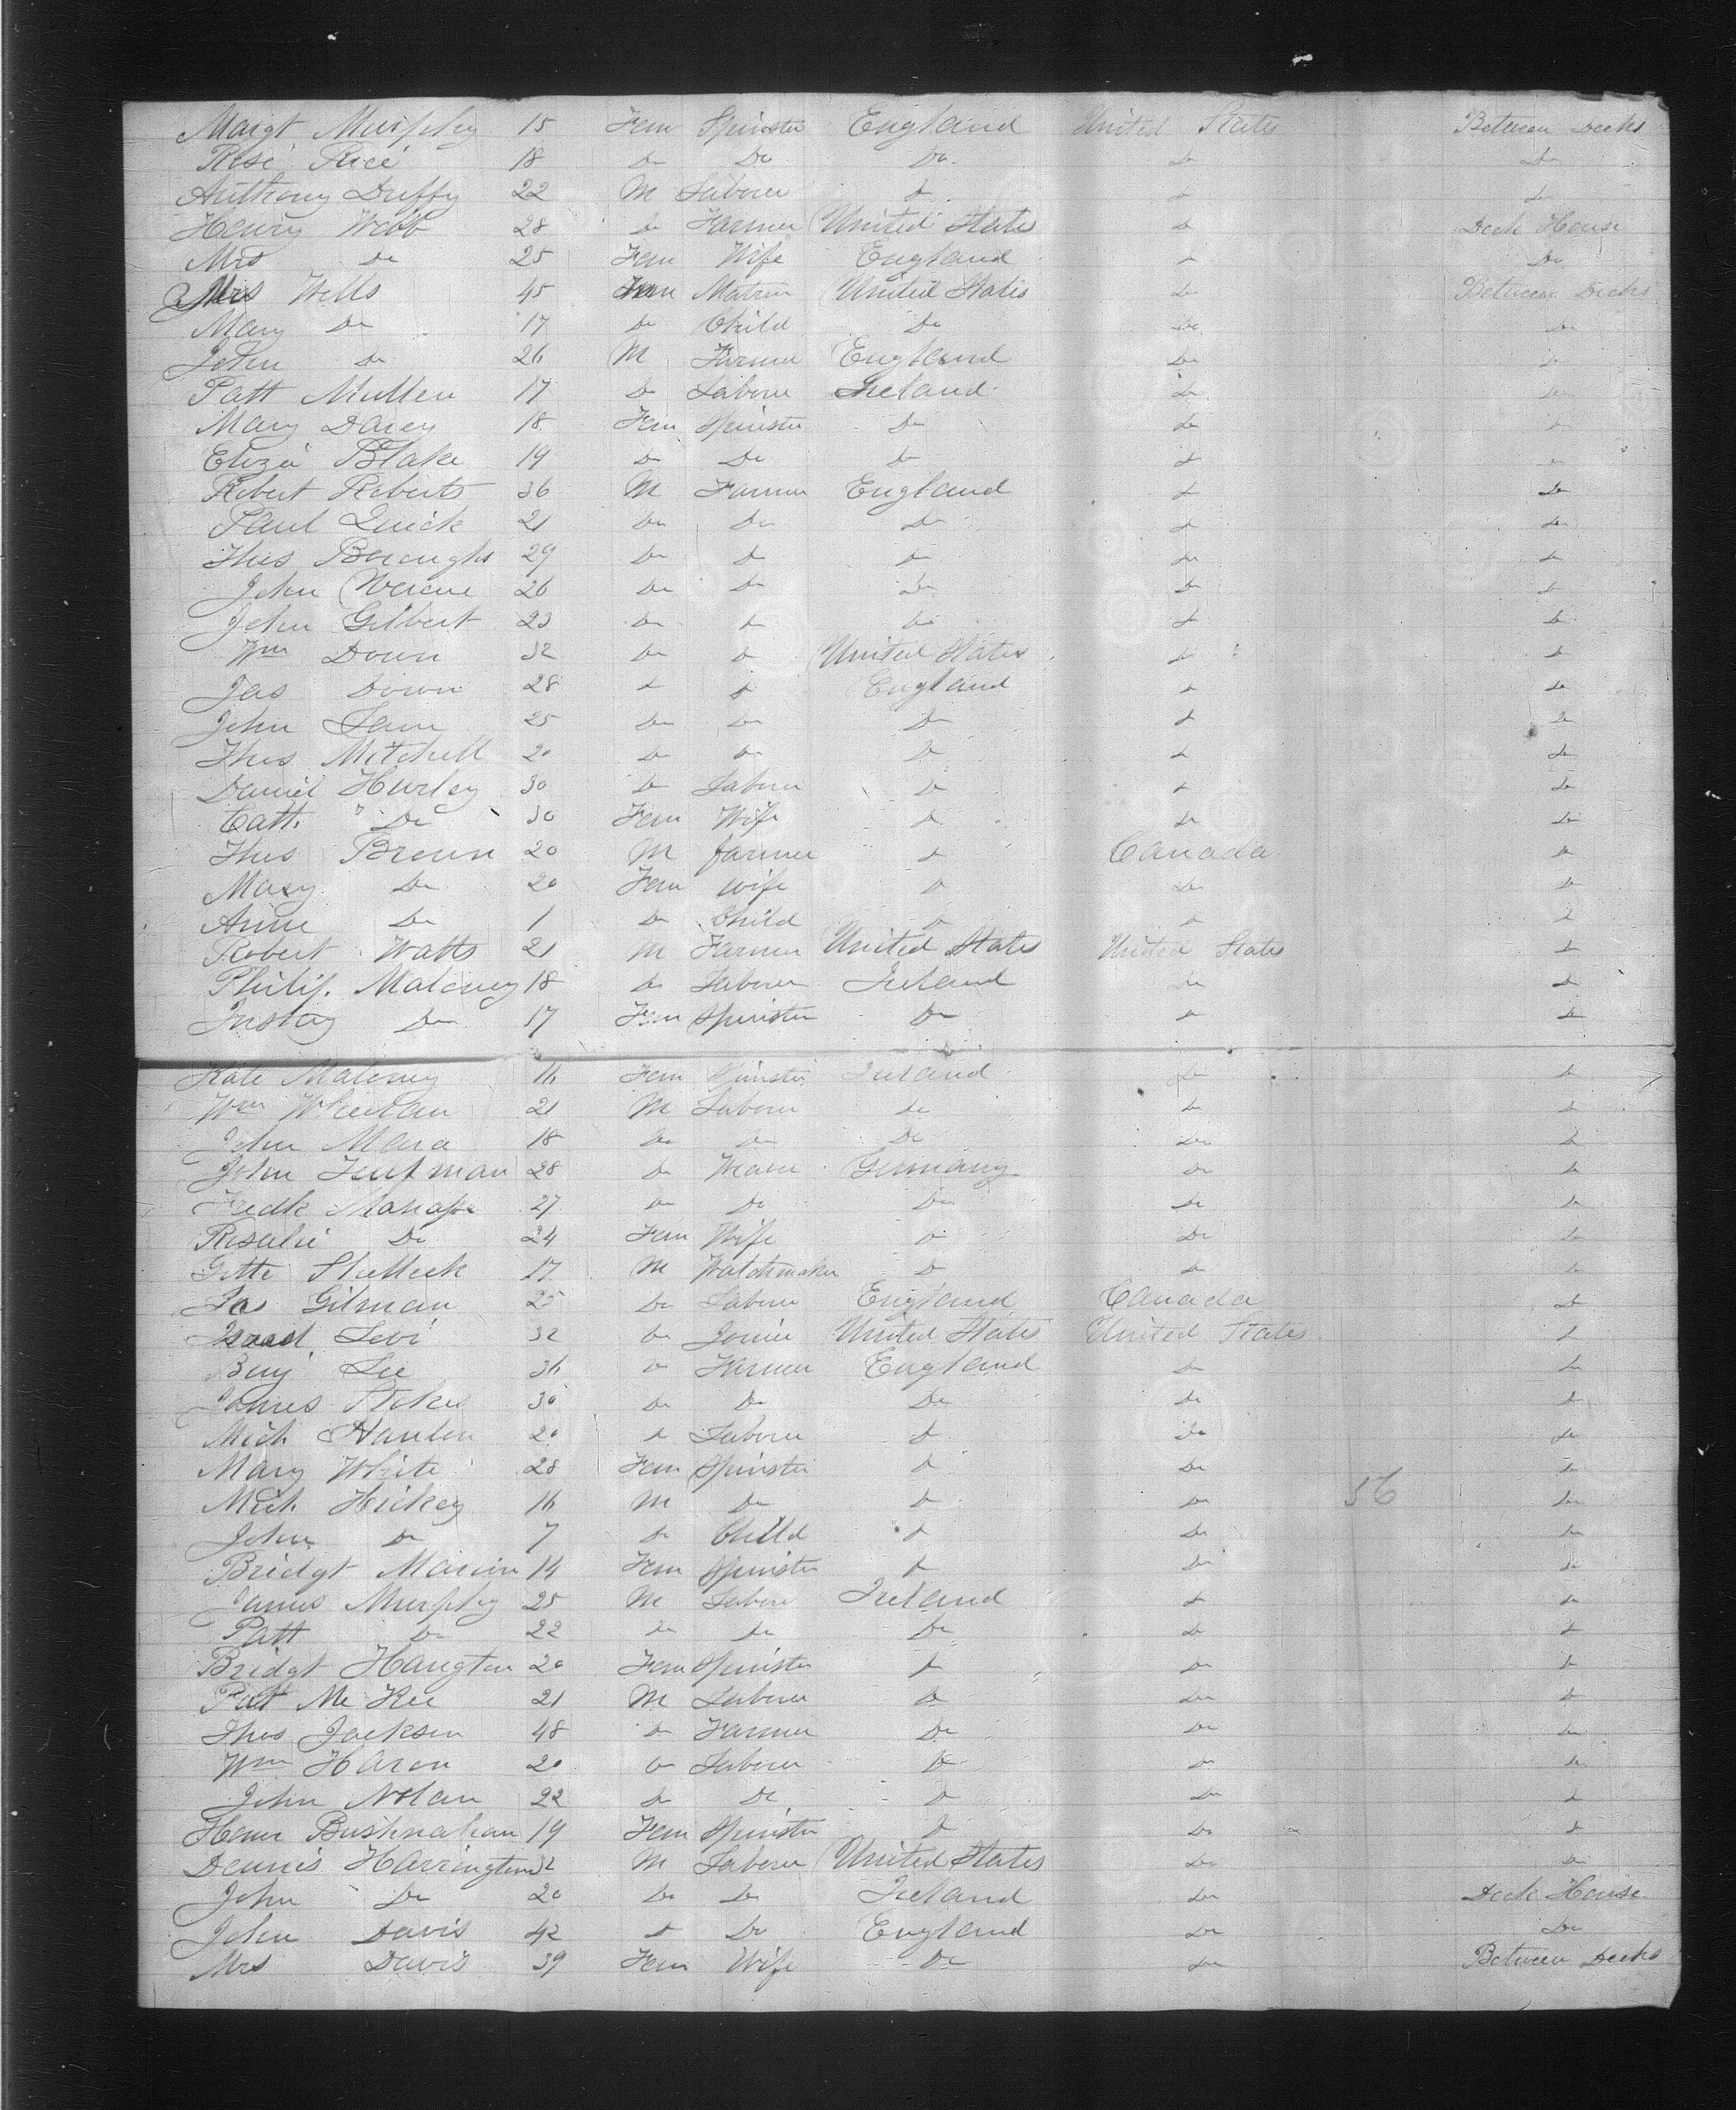 Margt Murphy 15 Fem Spinster England United States Between Decks
Rose Rice 18 Do Do Do Do Do
Anthony Duffy 22 M Laborer Do Do Do
Henry Webb 28 Do Farmer United States Do Deck House
Mrs Do 25 Fem Wife England Do Do
Mrs Wells 45 Fem Matron United States Do Between Decks
Mary Do 17 Do Child Do Do Do
John Do 26 M Farmer England Do Do
Patt Mullen 17 Do Laborer Ireland Do Do
Mary Darcy 18 Fem Spinster Do Do Do
Eliza Blake 19 Do Do Do Do Do
Robert Roberts 36 M Farmer England Do Do
Paul Quick 21 Do Do Do Do Do
Thos Boroughs 29 Do Do Do Do Do
John 26 Do Do Do Do Do
John Gilbert 23 Do Do Do Do Do
Wm Down 32 Do Do United States Do Do
Jas Down 28 Do Do England Do Do
John Lane 25 Do Do Do Do Do
Thos Mitchell 20 Do Do Do Do Do
Daniel Hurley 30 Do Laborer Do Do Do
Cath. " Do 30 Fem Wife Do Do Do
Thos Brown 20 M farmer Do Canada Do
Mary Do 20 Fem wife Do Do Do
Anne Do 1 Do Child Do Do Do
Robert Watts 21 M Farmer United States United States Do
Philip. Maloney 18 Do Laborer Ireland Do Do
Do 17 Fem Spinster Do Do Do
Kate Maloney 16 Fem Spinster Ireland Do Do
Wm Wheelan 21 M Laborer Do Do Do
John Mara 18 Do Do Do Do Do
John 28 Do Weaver Germany Do Do
Fredk 27 Do Do Do Do Do
Rosalie Do 24 Fem Wife Do Do Do
17 M Watchmaker Do Do Do
Jas Gilman 25 Do Laborer England Canada Do
Israel Levi 32 Do Joiner United States United States Do
Benj Lee 36 Do Farmer England Do Do
James Stokes 30 Do Do Do Do Do
Mich Hanlon 20 Do Laborer Do Do Do
Mary White 28 Fem Spinster Do Do Do
Mich Hickey 16 M Do Do Do 56 Do
John Do 7 Do Child Do Do Do
Bridgt 14 Fem Spinster Do Do Do
James Murphy 25 M Labor Ireland Do Do
Patt Do 22 Do Do Do Do Do
Bridgt Hangton 20 Fem Spinster Do Do Do
Patt Mc Kee 21 M Laborer Do Do Do
Thos Jackson 48 Do Farmer Do Do Do
Wm Haron 20 Do Laborer Do Do Do
John Nolan 22 Do Do Do Do Do
19 Fem Spinster Do Do Do
Dennis Harrington 32 M Laborer United States Do Do
John Do 20 Do Do Ireland Do Deck House
John Davis 42 Do Do England Do Do
Mrs Davis 39 Fem Wife Do Do Between Decks